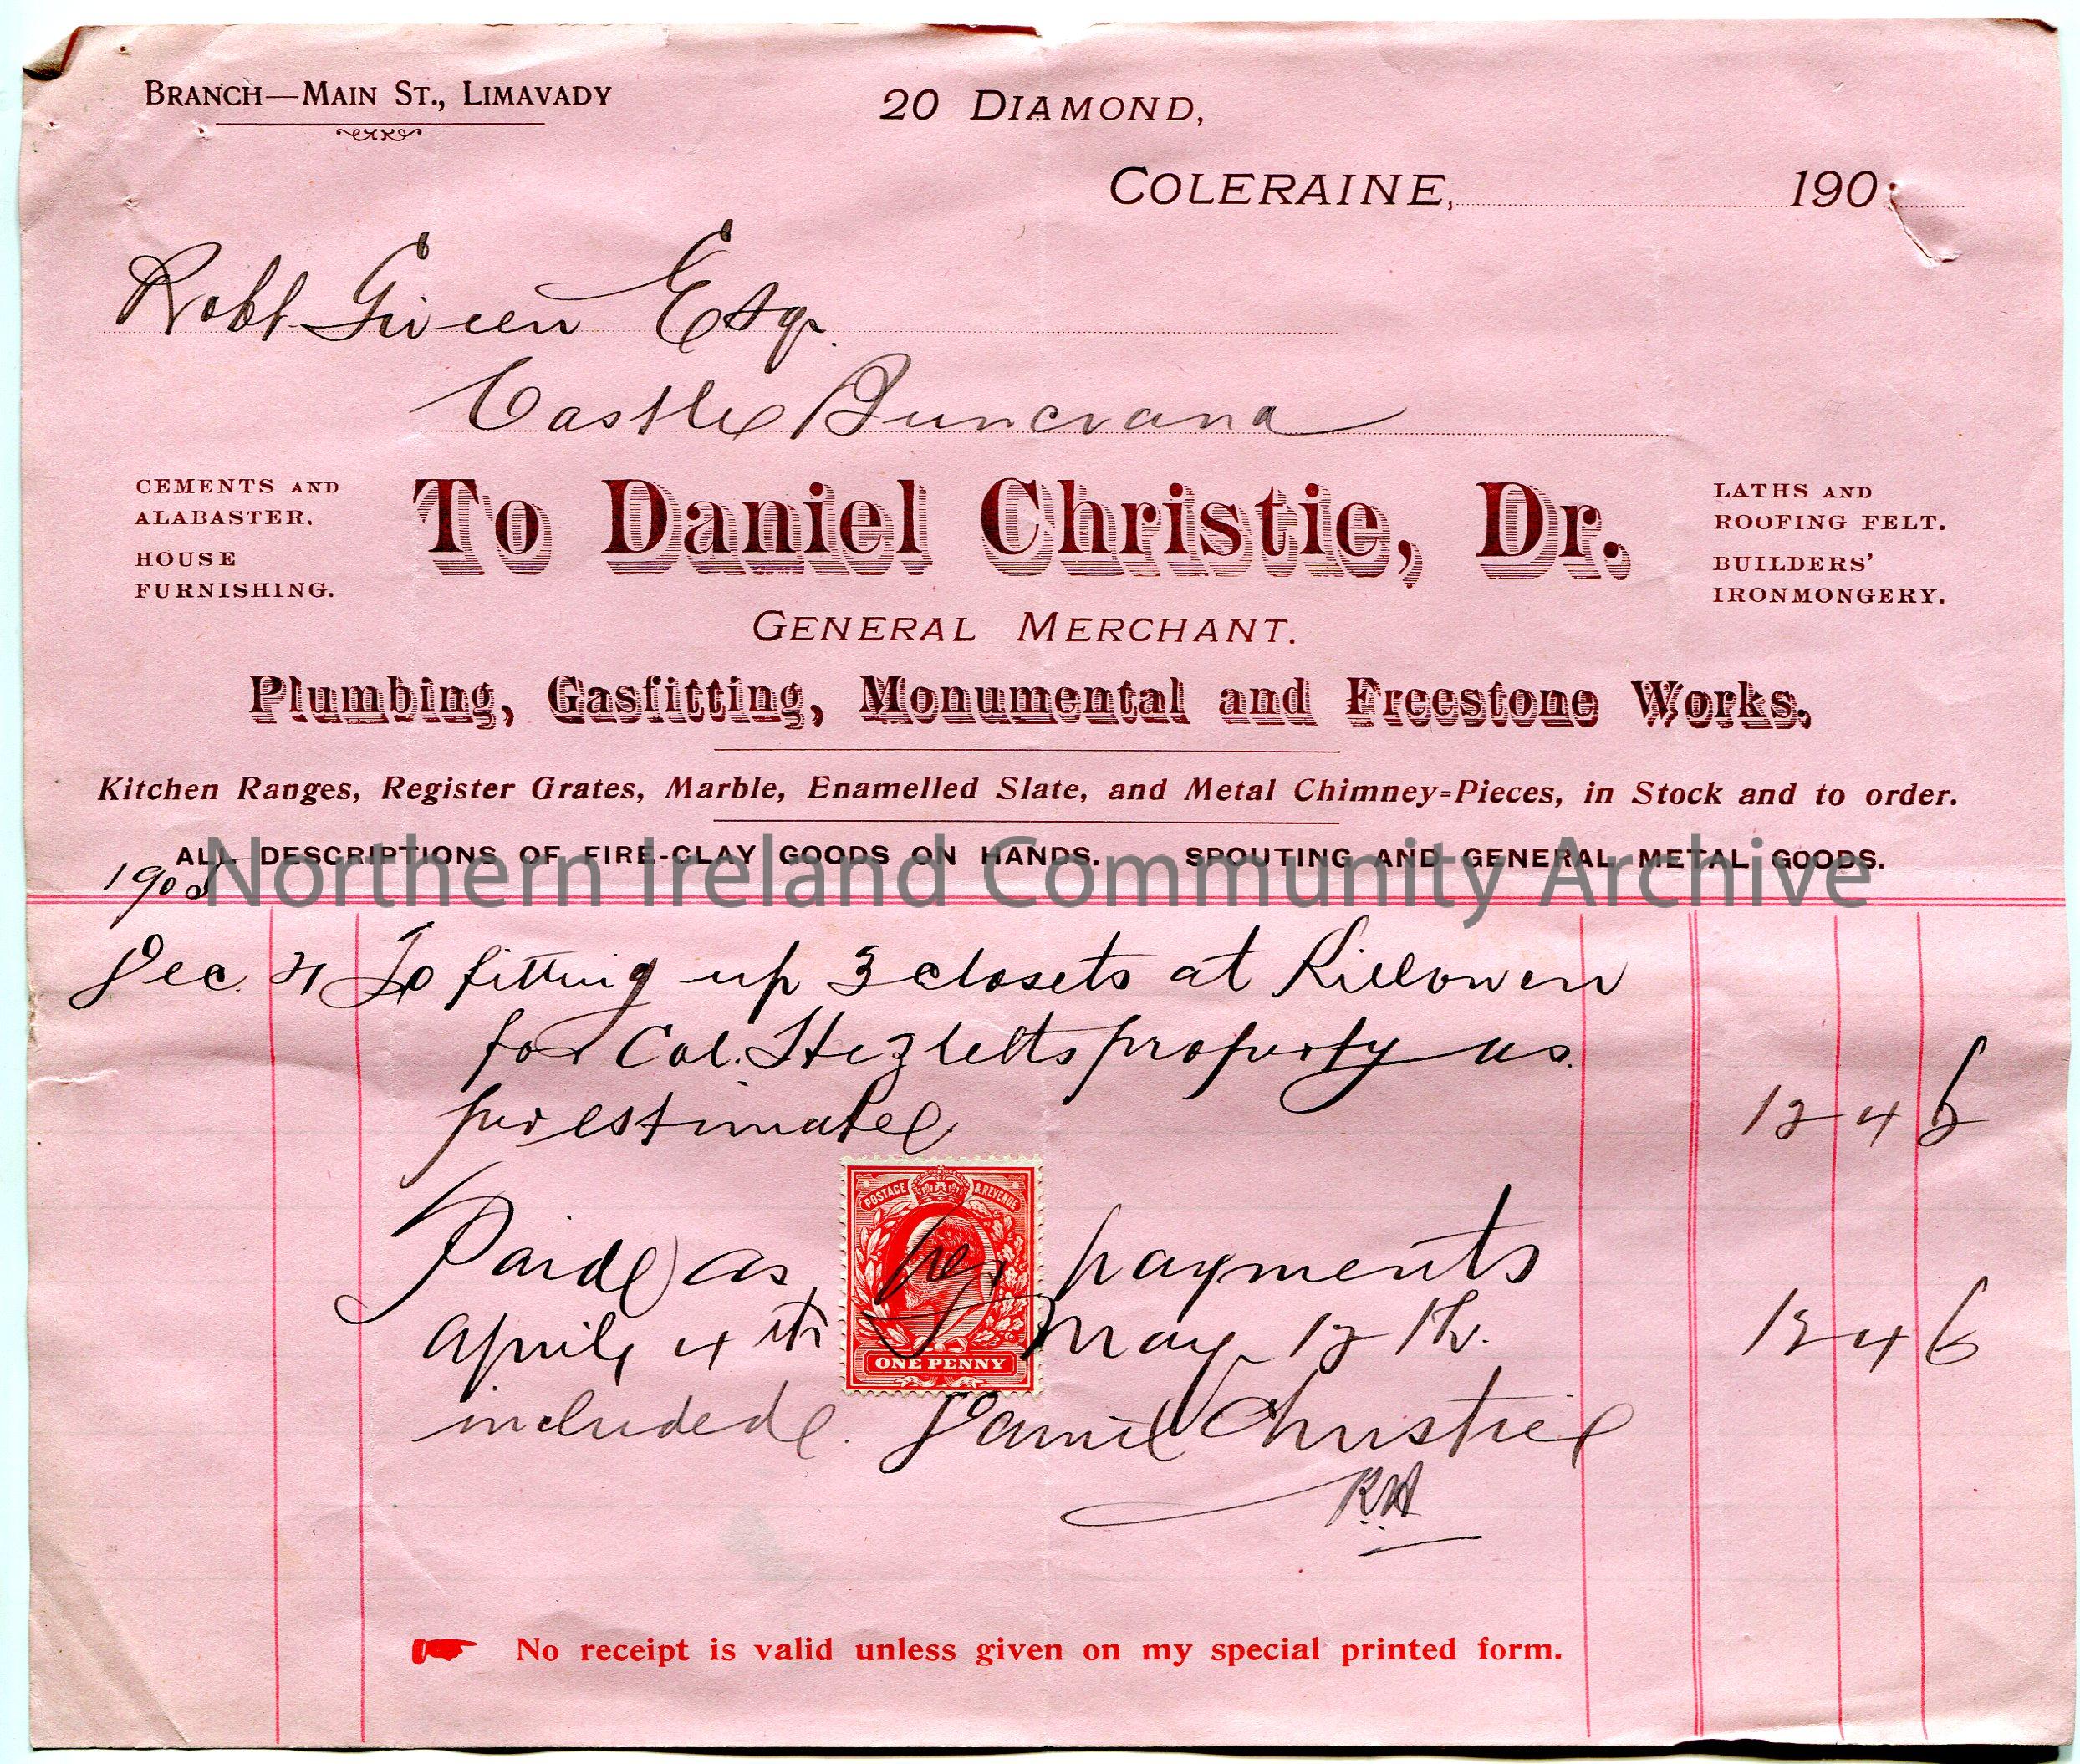 BRANCH—MAIN ST., LIMAVADY
20 DIAMOND,
COLERAINE, 190
Robt Given Esqr.
Castle Buncrana
CEMENTS AND
ALABASTER.
HOUSE
FURNISHING.
To Daniel Christie, Dr.
LATHS AND
ROOFING FELT.
BUILDERS'
IRONMONGERY.
GENERAL MERCHANT.
Plumbing, Gasfitting, Monumental and Freestone Works.
Kitchen Ranges, Register Grates, Marble, Enamelled Slate, and Metal Chimney-Pieces, in Stock and to order.
ALL DESCRIPTIONS OF FIRE-CLAY GOODS ON HANDS. SPOUTING AND GENERAL METAL GOODS.
Northern Ireland Community Archive
Dec. To fitting up 3 closets at Killowen
for Col. Hezletts property as
per estimate 12 4 6
POSTAGE & REVENUE
Paid as per payments
April 4th May 12th. 12 4 6
ONE PENNY
included. Daniel Christie
No receipt is valid unless given on my special printed form.